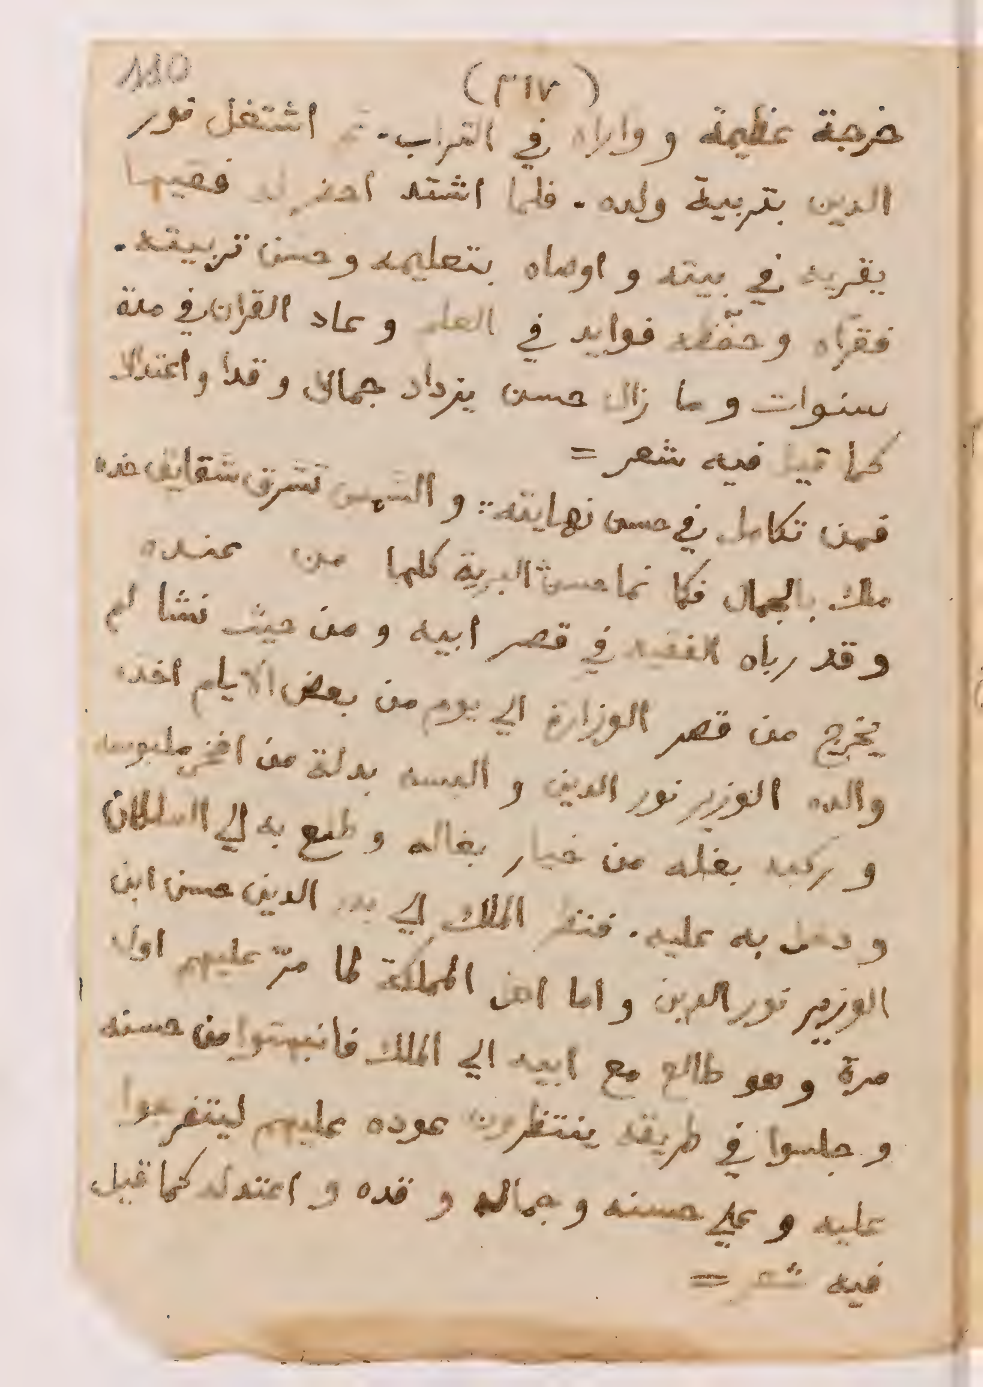 110
(٣١٧)
خرجة عظيمة و واراه في التراب. ثم اشتغل نور
الدين بتربية ولده. فلما اشتد احضر له فقيها
يقريه في بيته و اوصاه بتعليمه و حسن تربيته.
فقرّاه و حفّظه فوايد في العلم و عاد القران في مدة
سنوات و ما زال حسن يزداد جمالا و قدا و اعتدالا
كما قيل فيه شعر =
فمن تكامل في حسن نهايته :: و الشمس تشرق شقايق خده
ملك بالجمال فكا نما حسن البرية كلها من عنده
و قد رباه الفقيه في قصر ابيه و من حيث نشا لم
يخرج من قصر الوزارة الي يوم من بعض الايام اخده
والده الوزير نور الدين و البسه بدلة من افخر ملبوسه
و ركبه بغله من خيار بغاله و طلع به الي السلطان
و دخل به عليه. فنظر الملك الي بدر الدين حسن ابن
الوزير نور الدين و اما اهل المملكة لما مرّ عليهم اول
مرة و هو طالع مع ابيه الي الملك فانبهتوا من حسنه
و جلسوا في طريقه ينتظرون عوده عليهم ليتفرجوا
عليه و علي حسنه و جماله و قده و اعتداله كما قيل
فيه شعر =